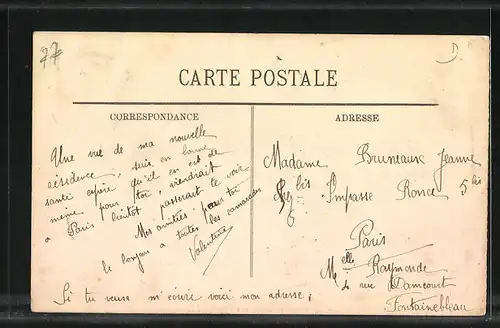 77
D.
CARTE POSTALE
CORRESPONDANCE
ADRESSE
Une vue de ma nouvelle
résidence, suis en bonne
santé espère qu'il en est de
même pour toi, viendrait
a Paris bientôt passerait te voir
Mes amitiés pour toi
le bonjour a toutes les camarades
Valentine
Si tu veux m'écrire voici mon adresse,
Madame Bruneaux Jeanne
bis Impasse Ronce 5 bis
6
Paris
Melle Raymonde
4 rue Damcourt
Fontainebleau